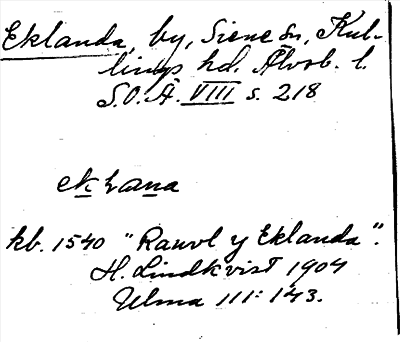 Eklanda, by, Siene sn, Kul-
lings hd. Älvsb. l.
S.O.Ä. VIII s. 218
ekₗana
kb. 1540 "Rauvl y Eklanda".
H. Lindkvist 1904
Ulma 111:143.